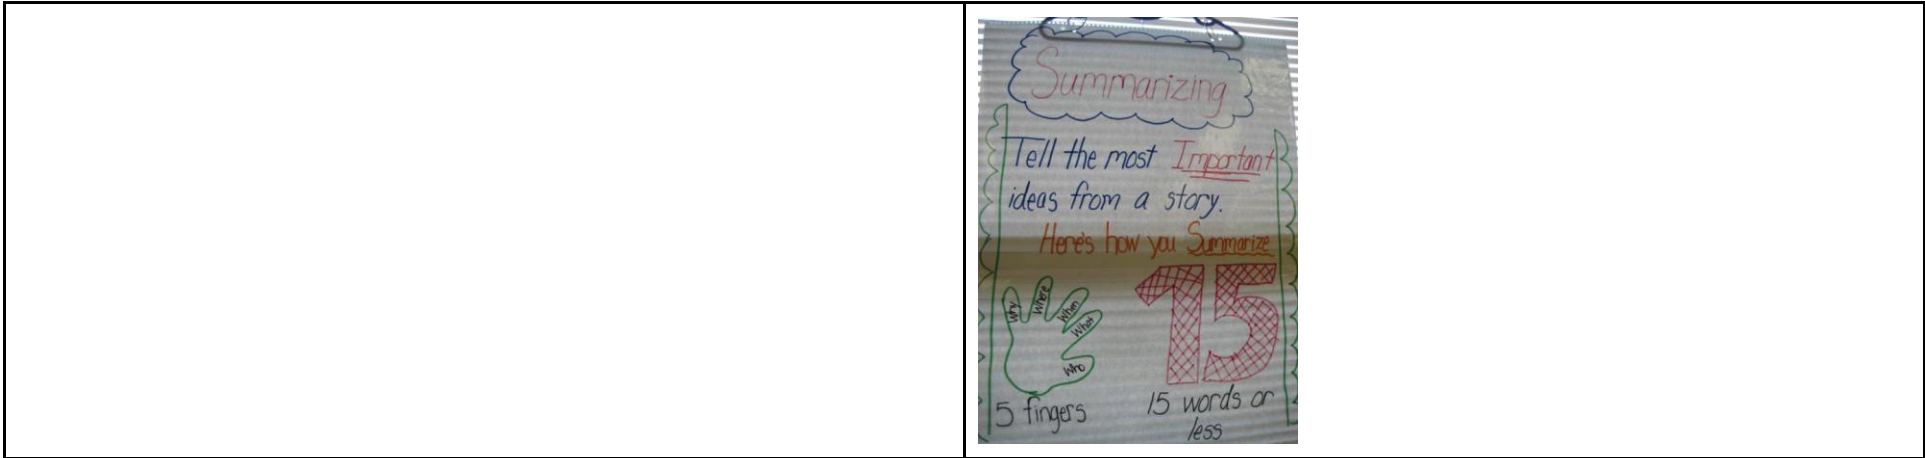 Summarizing
Tell the most Important
ideas from a story.
Here's how you Summarize
Why
Where
When
What
Who
15
5 fingers
15 words or
less